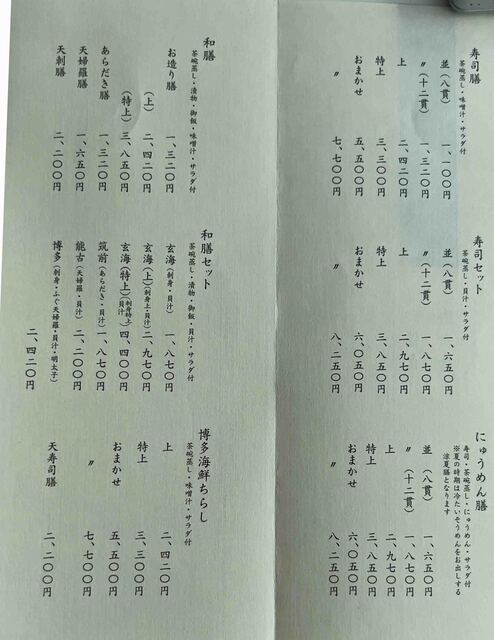 寿司膳
茶碗蒸し・味噌汁・サラダ付
並(八貫) 一、一〇〇円
〃(十二貫) 一、三二〇円
上 二、四二〇円
特上 三、三〇〇円
おまかせ 五、五〇〇円
〃 七、七〇〇円
寿司セット
茶碗蒸し・貝汁・サラダ付
並(八貫) 一、六五〇円
〃(十二貫) 一、八七〇円
上 二、九七〇円
特上 三、八五〇円
おまかせ 六、〇五〇円
〃 八、二五〇円
にゅうめん膳
寿司・茶碗蒸し・にゅうめん・サラダ付
※夏の時期は冷たいそうめんをお出しする
涼夏膳となります
並(八貫) 一、六五〇円
〃(十二貫) 一、八七〇円
上 二、九七〇円
特上 三、八五〇円
おまかせ 六、〇五〇円
〃 八、二五〇円
和膳
茶碗蒸し・漬物・御飯・味噌汁・サラダ付
お造り膳 一、三二〇円
(上) 二、四二〇円
(特上) 三、八五〇円
あらだき膳 一、三二〇円
天婦羅膳 一、六五〇円
天刺膳 二、二〇〇円
和膳セット
茶碗蒸し・漬物・御飯・貝汁・サラダ付
玄海(刺身・貝汁) 一、八七〇円
玄海(上)(刺身上・貝汁) 二、九七〇円
玄海(特上)(刺身特上・貝汁) 四、四〇〇円
筑前(あらだき・貝汁) 一、八七〇円
能古(天婦羅・貝汁) 二、二〇〇円
博多(刺身・ふぐ天婦羅・貝汁・明太子) 二、四二〇円
博多海鮮ちらし
茶碗蒸し・味噌汁・サラダ付
上 二、四二〇円
特上 三、三〇〇円
おまかせ 五、五〇〇円
〃 七、七〇〇円
天寿司膳 二、二〇〇円